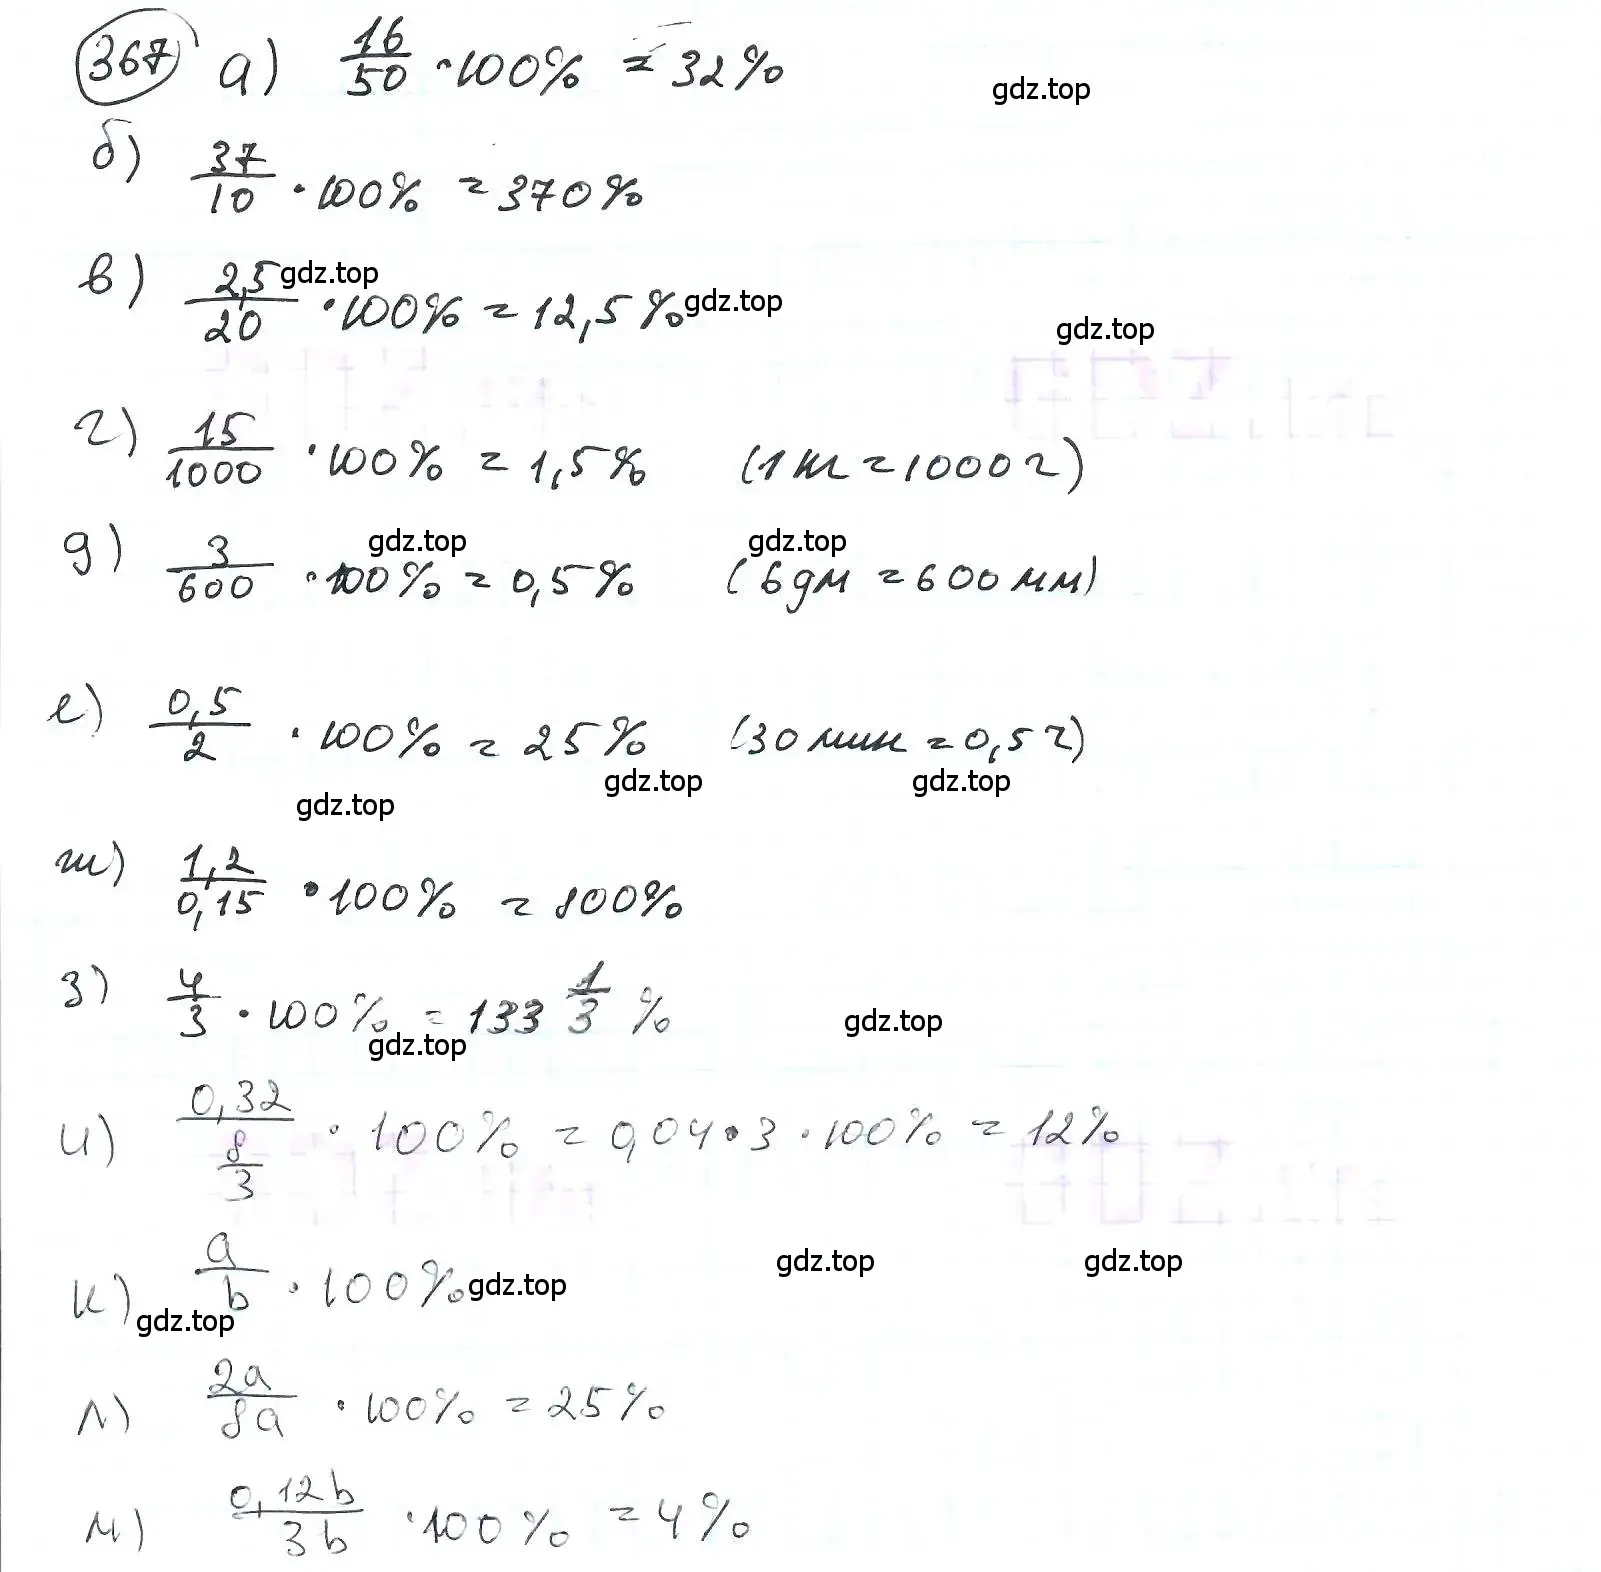 367 а) 16/50 · 100% = 32%
gdz.top
б) 37/10 · 100% = 370%
в) 2,5/20 · 100% = 12,5%
gdz.top gdz.top gdz.top
г) 15/1000 · 100% = 1,5% (1 кг = 1000 г)
gdz.top gdz.top
д) 3/600 · 100% = 0,5% (6 дм = 600 мм)
е) 0,5/2 · 100% = 25% (30 мин = 0,5 ч)
gdz.top gdz.top gdz.top
ж) 1,2/0,15 · 100% = 800%
з) 4/3 · 100% = 133 1/3 %
gdz.top gdz.top
и) 0,32/(8/3) · 100% = 0,04 · 3 · 100% = 12%
к) a/b · 100%
gdz.top gdz.top gdz.top gdz.top
л) 2a/8a · 100% = 25%
м) 0,12b/3b · 100% = 4%